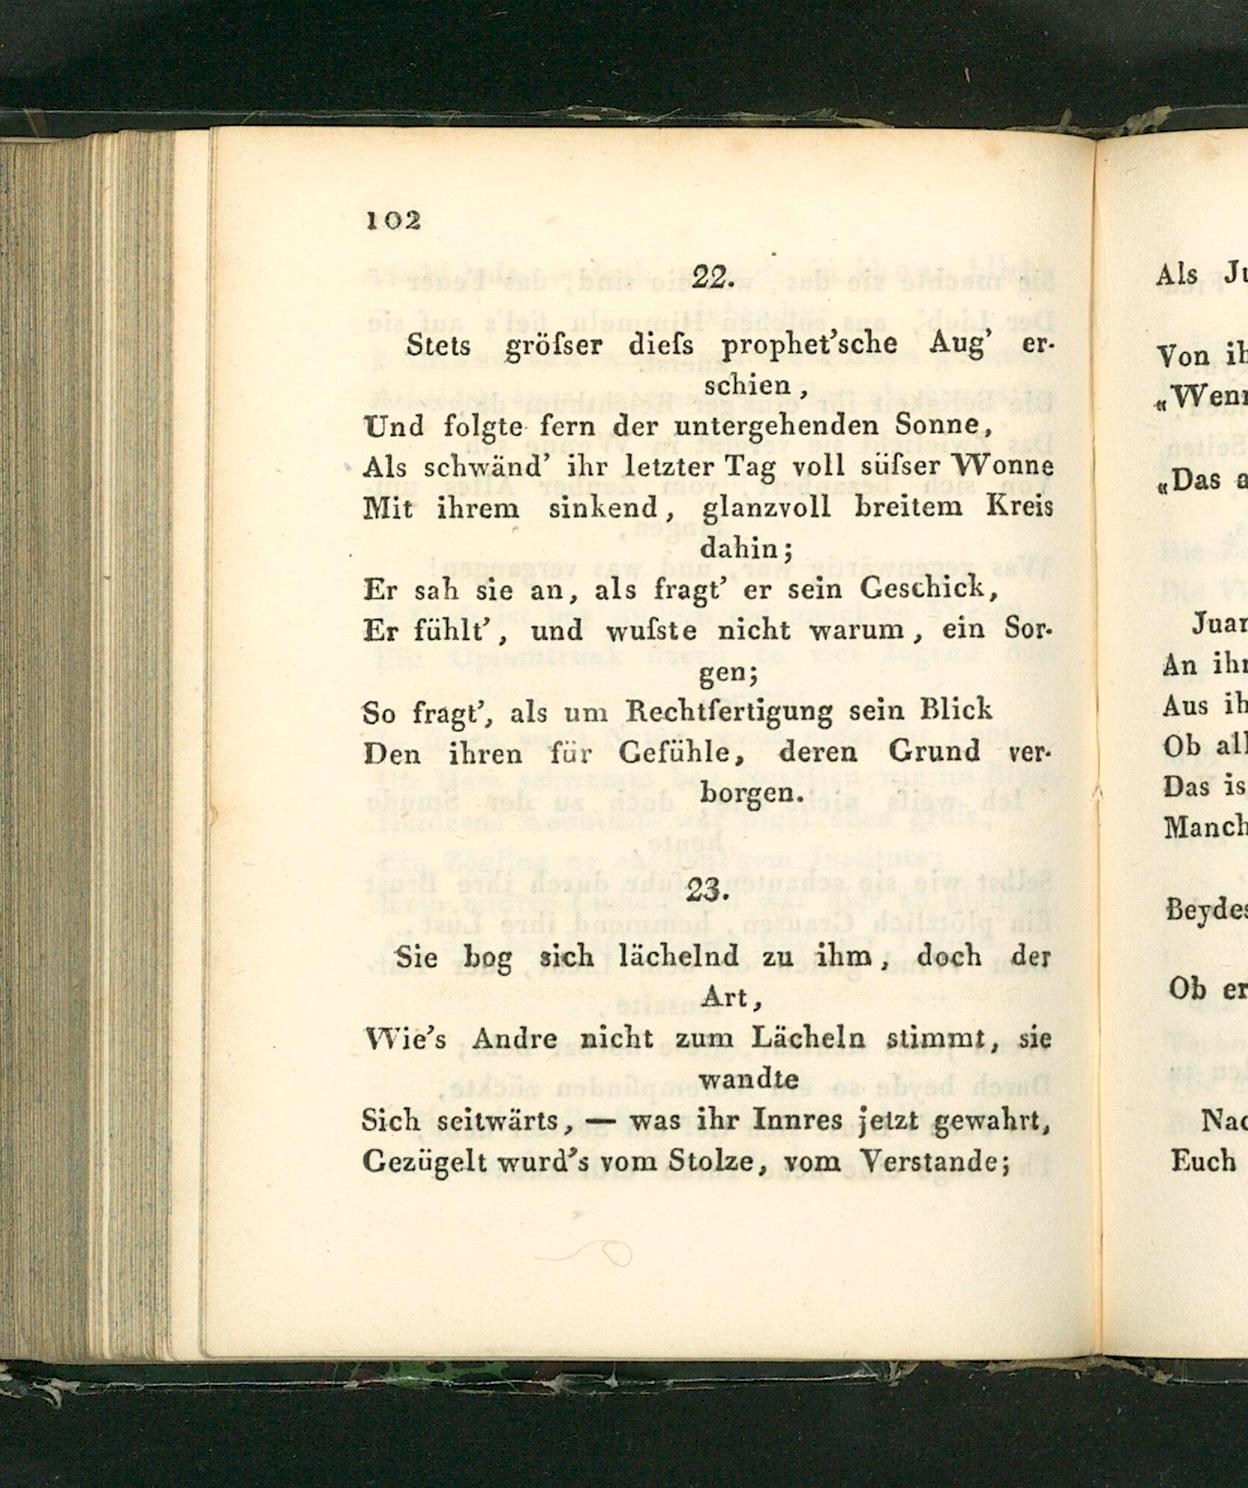 102
22.
Stets gröſser dieſs prophet'sche Aug' er-
schien,
Und folgte fern der untergehenden Sonne,
Als schwänd' ihr letzter Tag voll süſser Wonne
Mit ihrem sinkend, glanzvoll breitem Kreis
dahin;
Er sah sie an, als fragt' er sein Geschick,
Er fühlt', und wuſste nicht warum, ein Sor-
gen;
So fragt', als um Rechtfertigung sein Blick
Den ihren für Gefühle, deren Grund ver-
borgen.
23.
Sie bog sich lächelnd zu ihm, doch der
Art,
Wie's Andre nicht zum Lächeln stimmt, sie
wandte
Sich seitwärts, — was ihr Innres jetzt gewahrt,
Gezügelt wurd's vom Stolze, vom Verstande;
Als
Von
„Das
An
Aus
Ob
Das
Ob
Euch